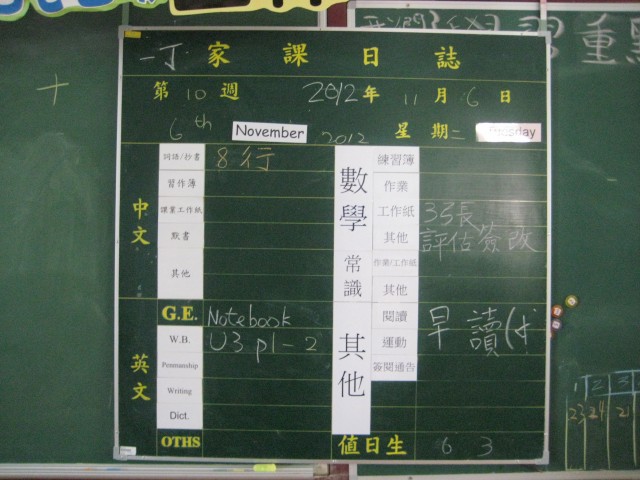 習重點
十
一丁 家課日誌
第 10 週 2012年 11月 6日
6th November 2012 星期二 Tuesday
中文
詞語/抄書 8行
習作簿
課業工作紙
默書
其他
英文
G.E. Notebook
W.B. U3 p1-2
Penmanship
Writing
Dict.
OTHS
數學
練習簿
作業
工作紙 35張
其他 評估簽改
常識
作業/工作紙
其他
其他
閱讀 早讀
運動
簽閱通告
值日生 6 3
1 2 3
23 24 21